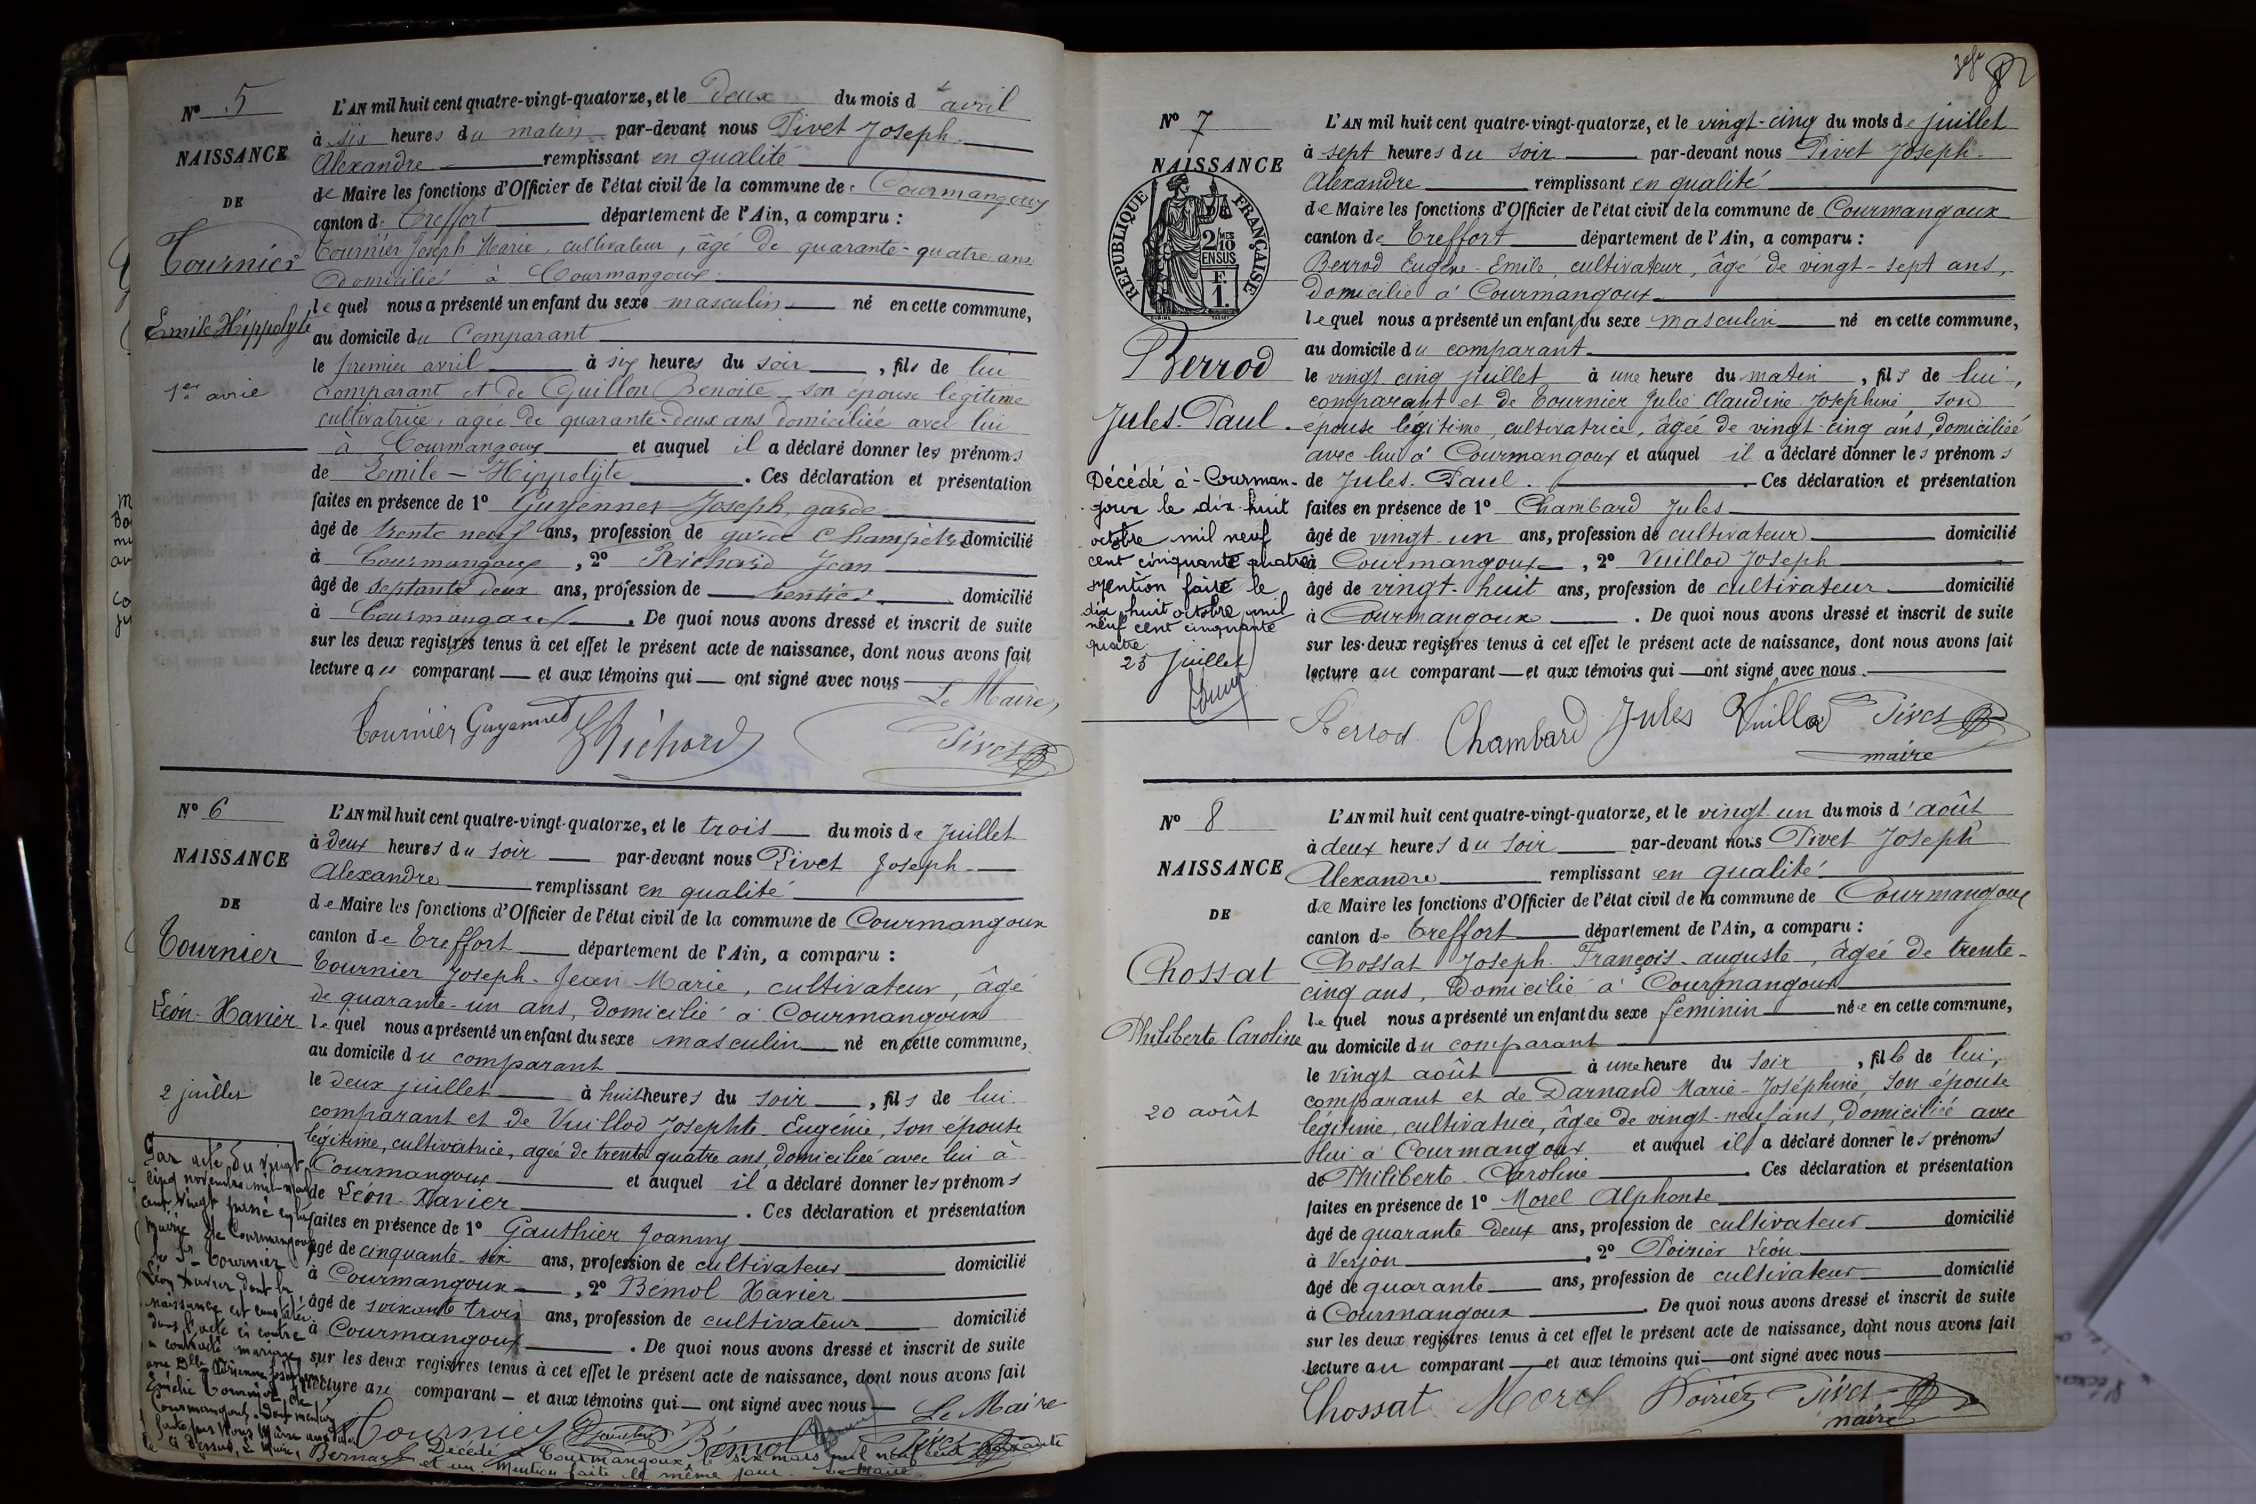 N° 5
NAISSANCE
DE
Tournier
Emile Hippolyte
1er avril
L'AN mil huit cent quatre-vingt-quatorze, et le deux du mois d'avril
à six heures du matin par-devant nous Pivet Joseph
Alexandre remplissant en qualité
de Maire les fonctions d'Officier de l'état civil de la commune de Courmangoux
canton de Treffort département de l'Ain, a comparu :
Tournier Joseph Marie, cultivateur, âgé de quarante-quatre ans
domicilié à Courmangoux
lequel nous a présenté un enfant du sexe masculin né en cette commune,
au domicile du Comparant
le premier avril à six heures du soir, fils de lui
comparant et de Guillon Benoite son épouse légitime
cultivatrice, agée de quarante-deux ans domiciliée avec lui
à Courmangoux et auquel il a déclaré donner les prénoms
de Emile - Hippolyte. Ces déclaration et présentation
faites en présence de 1° Guyennet Joseph, garde
âgé de trente neuf ans, profession de garde Champêtre domicilié
à Courmangoux, 2° Richard Jean
âgé de septante deux ans, profession de rentier domicilié
à Courmangoux. De quoi nous avons dressé et inscrit de suite
sur les deux registres tenus à cet effet le présent acte de naissance, dont nous avons fait
lecture au comparant et aux témoins qui ont signé avec nous
Le Maire,
Tournier Guyennet Richard Pivet
N° 6
NAISSANCE
DE
Tournier
Léon-Xavier
2 juillet
Par acte du vingt
cinq novembre mil-neuf
cent vingt passé en la
Mairie de Courmangoux
le Sr Tournier
Léon Xavier dont la
naissance est constatée
dans l'acte ci contre
a contracté mariage
avec Dlle Adrienne Joséphine
Emélie Tournier de
Courmangoux. Dont mention
faite par Nous Maire
ci dessus, Le Maire,
Bernard
L'AN mil huit cent quatre-vingt-quatorze, et le trois du mois de Juillet
à deux heures du soir par-devant nous Pivet Joseph
Alexandre remplissant en qualité
de Maire les fonctions d'Officier de l'état civil de la commune de Courmangoux
canton de Treffort département de l'Ain, a comparu :
Tournier Joseph-Jean Marie, cultivateur, âgé
de quarante-un ans, domicilié à Courmangoux
lequel nous a présenté un enfant du sexe masculin né en cette commune,
au domicile du comparant
le deux juillet à huit heures du soir, fils de lui
comparant et de Vuillod Josephte-Eugénie, son épouse
légitime, cultivatrice, agée de trente quatre ans, domiciliée avec lui à
Courmangoux et auquel il a déclaré donner les prénoms
de Léon-Xavier. Ces déclaration et présentation
faites en présence de 1° Gauthier Joanny
âgé de cinquante-six ans, profession de cultivateur domicilié
à Courmangoux, 2° Bémol Xavier
âgé de soixante trois ans, profession de cultivateur domicilié
à Courmangoux. De quoi nous avons dressé et inscrit de suite
sur les deux registres tenus à cet effet le présent acte de naissance, dont nous avons fait
lecture au comparant et aux témoins qui ont signé avec nous Le Maire
Tournier Gauthier Bémol Pivet
Décédé à Courmangoux le six mars mil neuf cent soixante
et un. Mention faite le même jour. Le Maire
N° 7
NAISSANCE
DE
REPUBLIQUE FRANÇAISE
2/10 MES
EN SUS
F.
1.
Berrod
Jules-Paul.
Décédé à-Courman-
goux le dix-huit
octobre mil neuf
cent cinquante quatre
Mention faite le
dix huit octobre mil
neuf cent cinquante
quatre
25 Juillet
L'AN mil huit cent quatre-vingt-quatorze, et le vingt-cinq du mois de juillet
à sept heures du soir par-devant nous Pivet Joseph
Alexandre remplissant en qualité
de Maire les fonctions d'Officier de l'état civil de la commune de Courmangoux
canton de Treffort département de l'Ain, a comparu :
Berrod Eugène-Emile, cultivateur, âgé de vingt-sept ans,
domicilié à Courmangoux
lequel nous a présenté un enfant du sexe masculin né en cette commune,
au domicile du comparant
le vingt cinq juillet à une heure du matin, fils de lui,
comparant et de Tournier Julie Claudine Joséphine son
épouse légitime, cultivatrice, âgée de vingt-cinq ans, domiciliée
avec lui à Courmangoux et auquel il a déclaré donner les prénoms
de Jules-Paul. Ces déclaration et présentation
faites en présence de 1° Chambard Jules
âgé de vingt-un ans, profession de cultivateur domicilié
à Courmangoux, 2° Vuillod Joseph
âgé de vingt-huit ans, profession de cultivateur domicilié
à Courmangoux. De quoi nous avons dressé et inscrit de suite
sur les deux registres tenus à cet effet le présent acte de naissance, dont nous avons fait
lecture au comparant et aux témoins qui ont signé avec nous.
Berrod Chambard Jules Vuillod Pivet
maire
N° 8
NAISSANCE
DE
Chossat
Philiberte-Caroline
20 août
L'AN mil huit cent quatre-vingt-quatorze, et le vingt un du mois d'août
à deux heures du soir par-devant nous Pivet Joseph
Alexandre remplissant en qualité
de Maire les fonctions d'Officier de l'état civil de la commune de Courmangoux
canton de Treffort département de l'Ain, a comparu :
Chossat Joseph-François-auguste, âgée de trente-
cinq ans, domicilié à Courmangoux
lequel nous a présenté un enfant du sexe féminin née en cette commune,
au domicile du comparant
le vingt août à une heure du soir, fille de lui,
comparant et de Darnand Marie-Joséphine son épouse
légitime, cultivatrice, âgée de vingt-neuf ans, domiciliée avec
lui à Courmangoux et auquel il a déclaré donner les prénoms
de Philiberte-Caroline. Ces déclaration et présentation
faites en présence de 1° Morel Alphonse
âgé de quarante deux ans, profession de cultivateur domicilié
à Verjon, 2° Poirier Léon
âgé de quarante ans, profession de cultivateur domicilié
à Courmangoux. De quoi nous avons dressé et inscrit de suite
sur les deux registres tenus à cet effet le présent acte de naissance, dont nous avons fait
lecture au comparant et aux témoins qui ont signé avec nous
Chossat Morel Poirier Pivet
maire